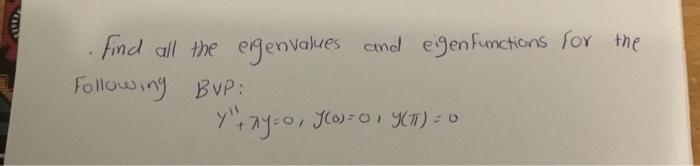 . Find all the eigenvalues and eigenfunctions for the
Following BVP:
y'' + λy = 0, y(0) = 0, y(π) = 0